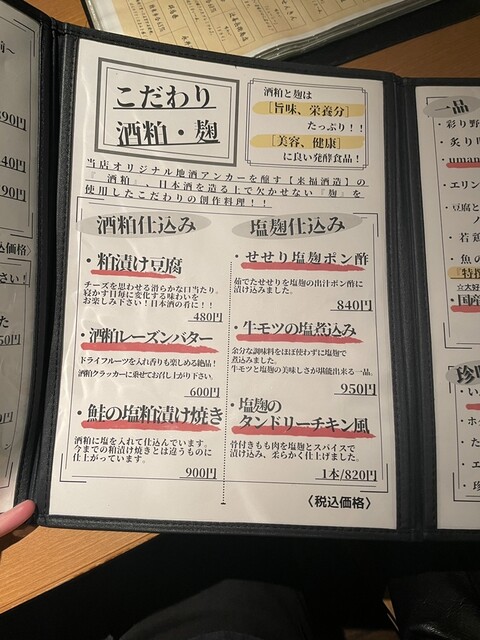 こだわり
酒粕・麹
酒粕と麹は
[旨味、栄養分]
たっぷり！！
[美容、健康]
に良い発酵食品！
当店オリジナル地酒アンカーを醸す【来福酒造】の
『酒粕』、日本酒を造る上で欠かせない『麹』を
使用したこだわりの創作料理！！
酒粕仕込み
・粕漬け豆腐
チーズを思わせる滑らかな口当たり。
寝かす日毎に変化する味わいを
お楽しみ下さい！日本酒の肴に！！
480円
・酒粕レーズンバター
ドライフルーツを入れ香りも楽しめる絶品！
酒粕クラッカーに乗せてお召し上がり下さい。
600円
・鮭の塩粕漬け焼き
酒粕に塩を入れて仕込んでいます。
今までの粕漬け焼きとは違うものに
仕上がっています。
900円
塩麹仕込み
・せせり塩麹ポン酢
茹でたせせりを塩麹の出汁ポン酢に
漬け込みました。
840円
・牛モツの塩煮込み
余分な調味料をほぼ使わずに塩麹で
煮込みました。
牛モツと塩麹の美味しさが堪能出来る一品。
950円
・塩麹の
タンドリーチキン風
骨付きもも肉を塩麹とスパイスで
漬け込み、柔らかく仕上げました。
1本/820円
〈税込価格〉
一品
・彩り野
・炙り
・uman
・エリン
・豆腐と
・若鶏
・魚の
『特撰
☆大好
・国産
「珍味